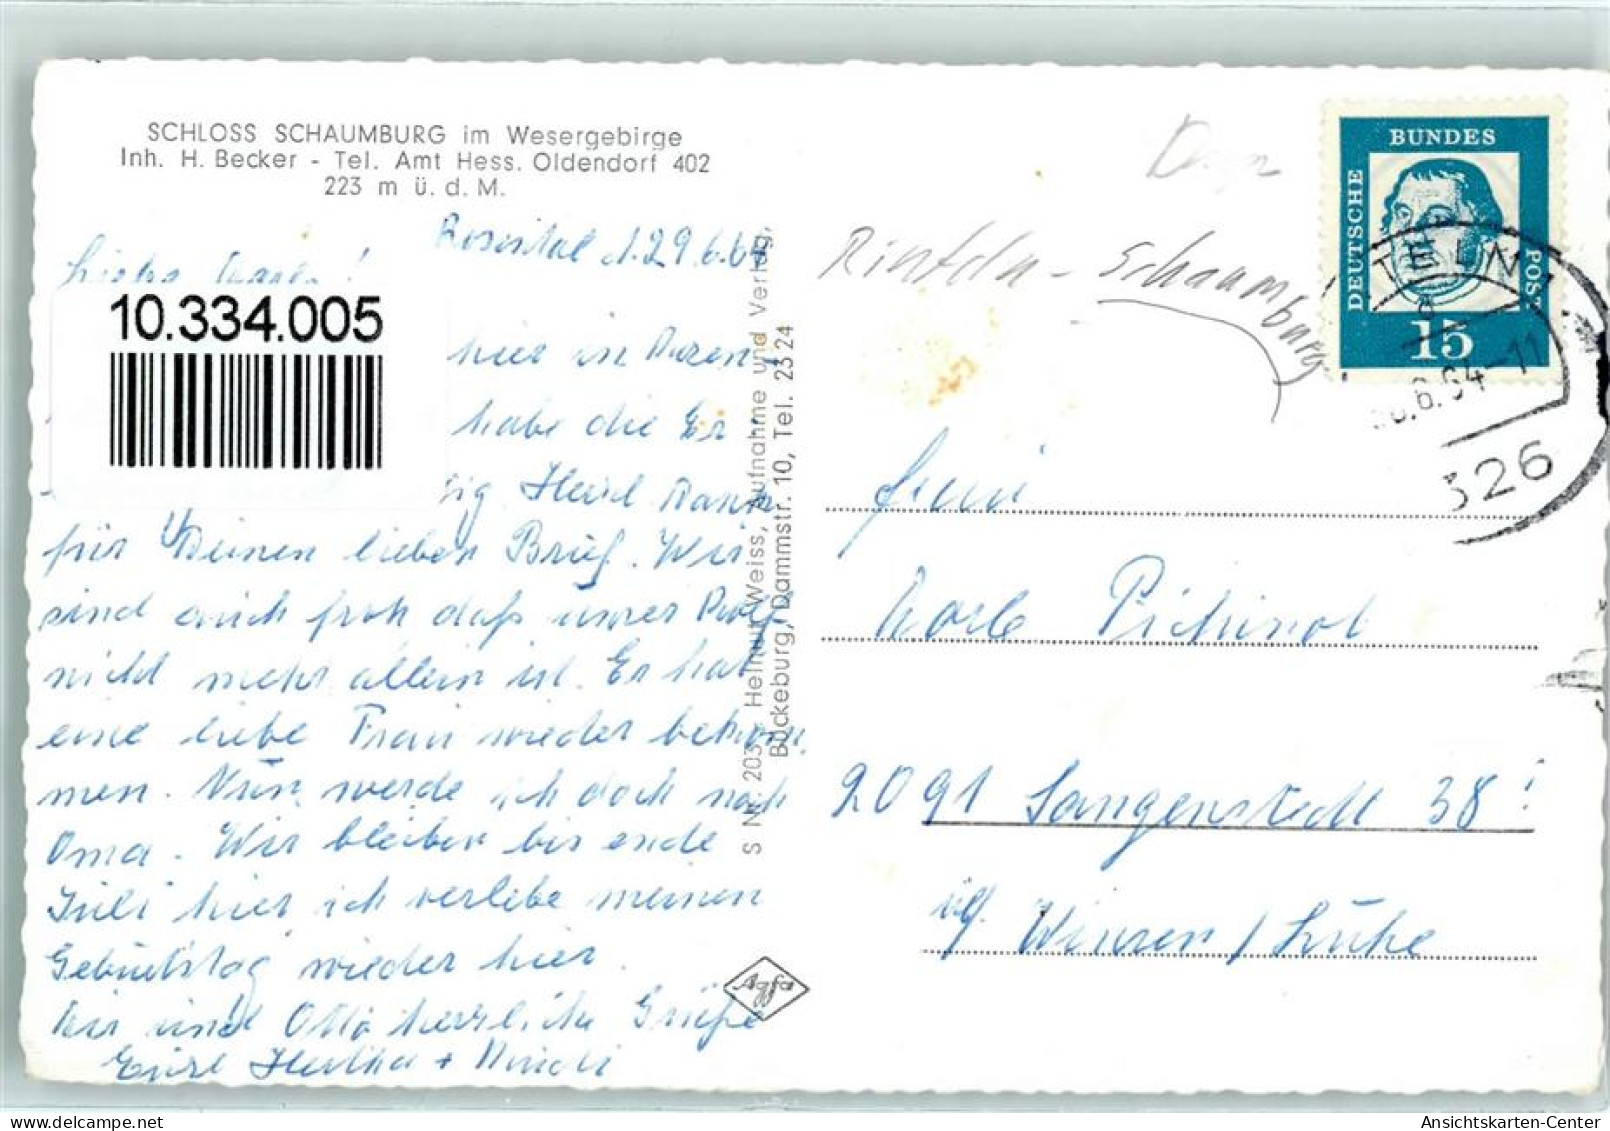 SCHLOSS SCHAUMBURG im Wesergebirge
Inh. H. Becker - Tel. Amt Hess. Oldendorf 402
223 m ü. d. M.
Rosental d. 29.6.64
10.334.005
hier in
habe die
für Deinen lieben Brief. Wir
sind auch froh daß unser
nicht mehr allein ist. Er hat
eine liebe Frau wieder bekom
men. Nun werde ich doch noch
Oma. Wir bleiben bis ende
Juli hier, ich verlebe meinen
Geburtstag wieder hier.
Dir und Otto herzliche Grüße
Eure Hertha +
S Nr. 203 Helmut Weiss, Aufnahme und Verlag,
Bückeburg, Dammstr. 10, Tel. 2324
Agfa
Rinteln - Schaumburg
DEUTSCHE
BUNDES
POST
15
TELN
a
.6.64-11
326
Frau
2091 Sangenstedt 38!
üb. Winsen / Luhe
Ansichtskarten-Center